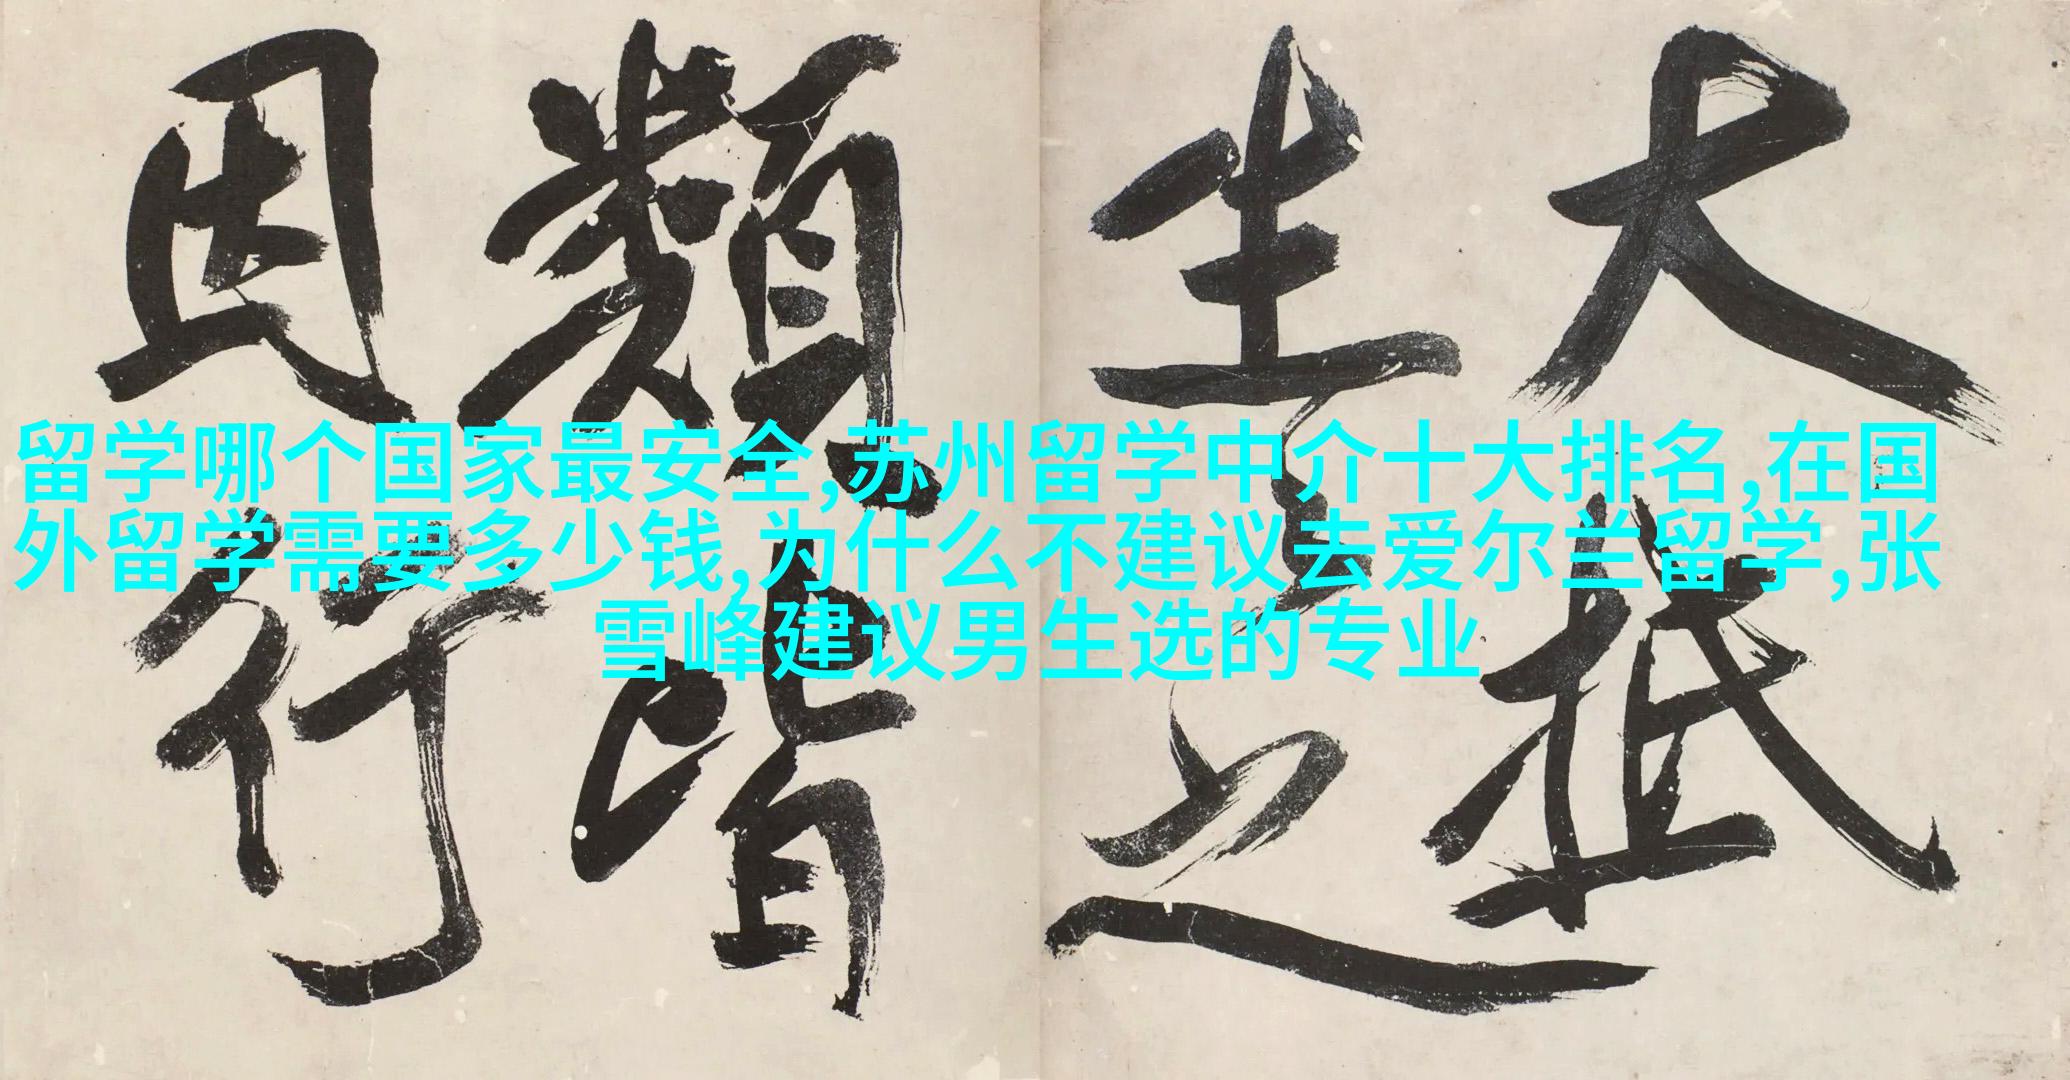 大抵
生之
類皆
因行
留学哪个国家最安全,苏州留学中介十大排名,在国
外留学需要多少钱,为什么不建议去爱尔兰留学,张
雪峰建议男生选的专业